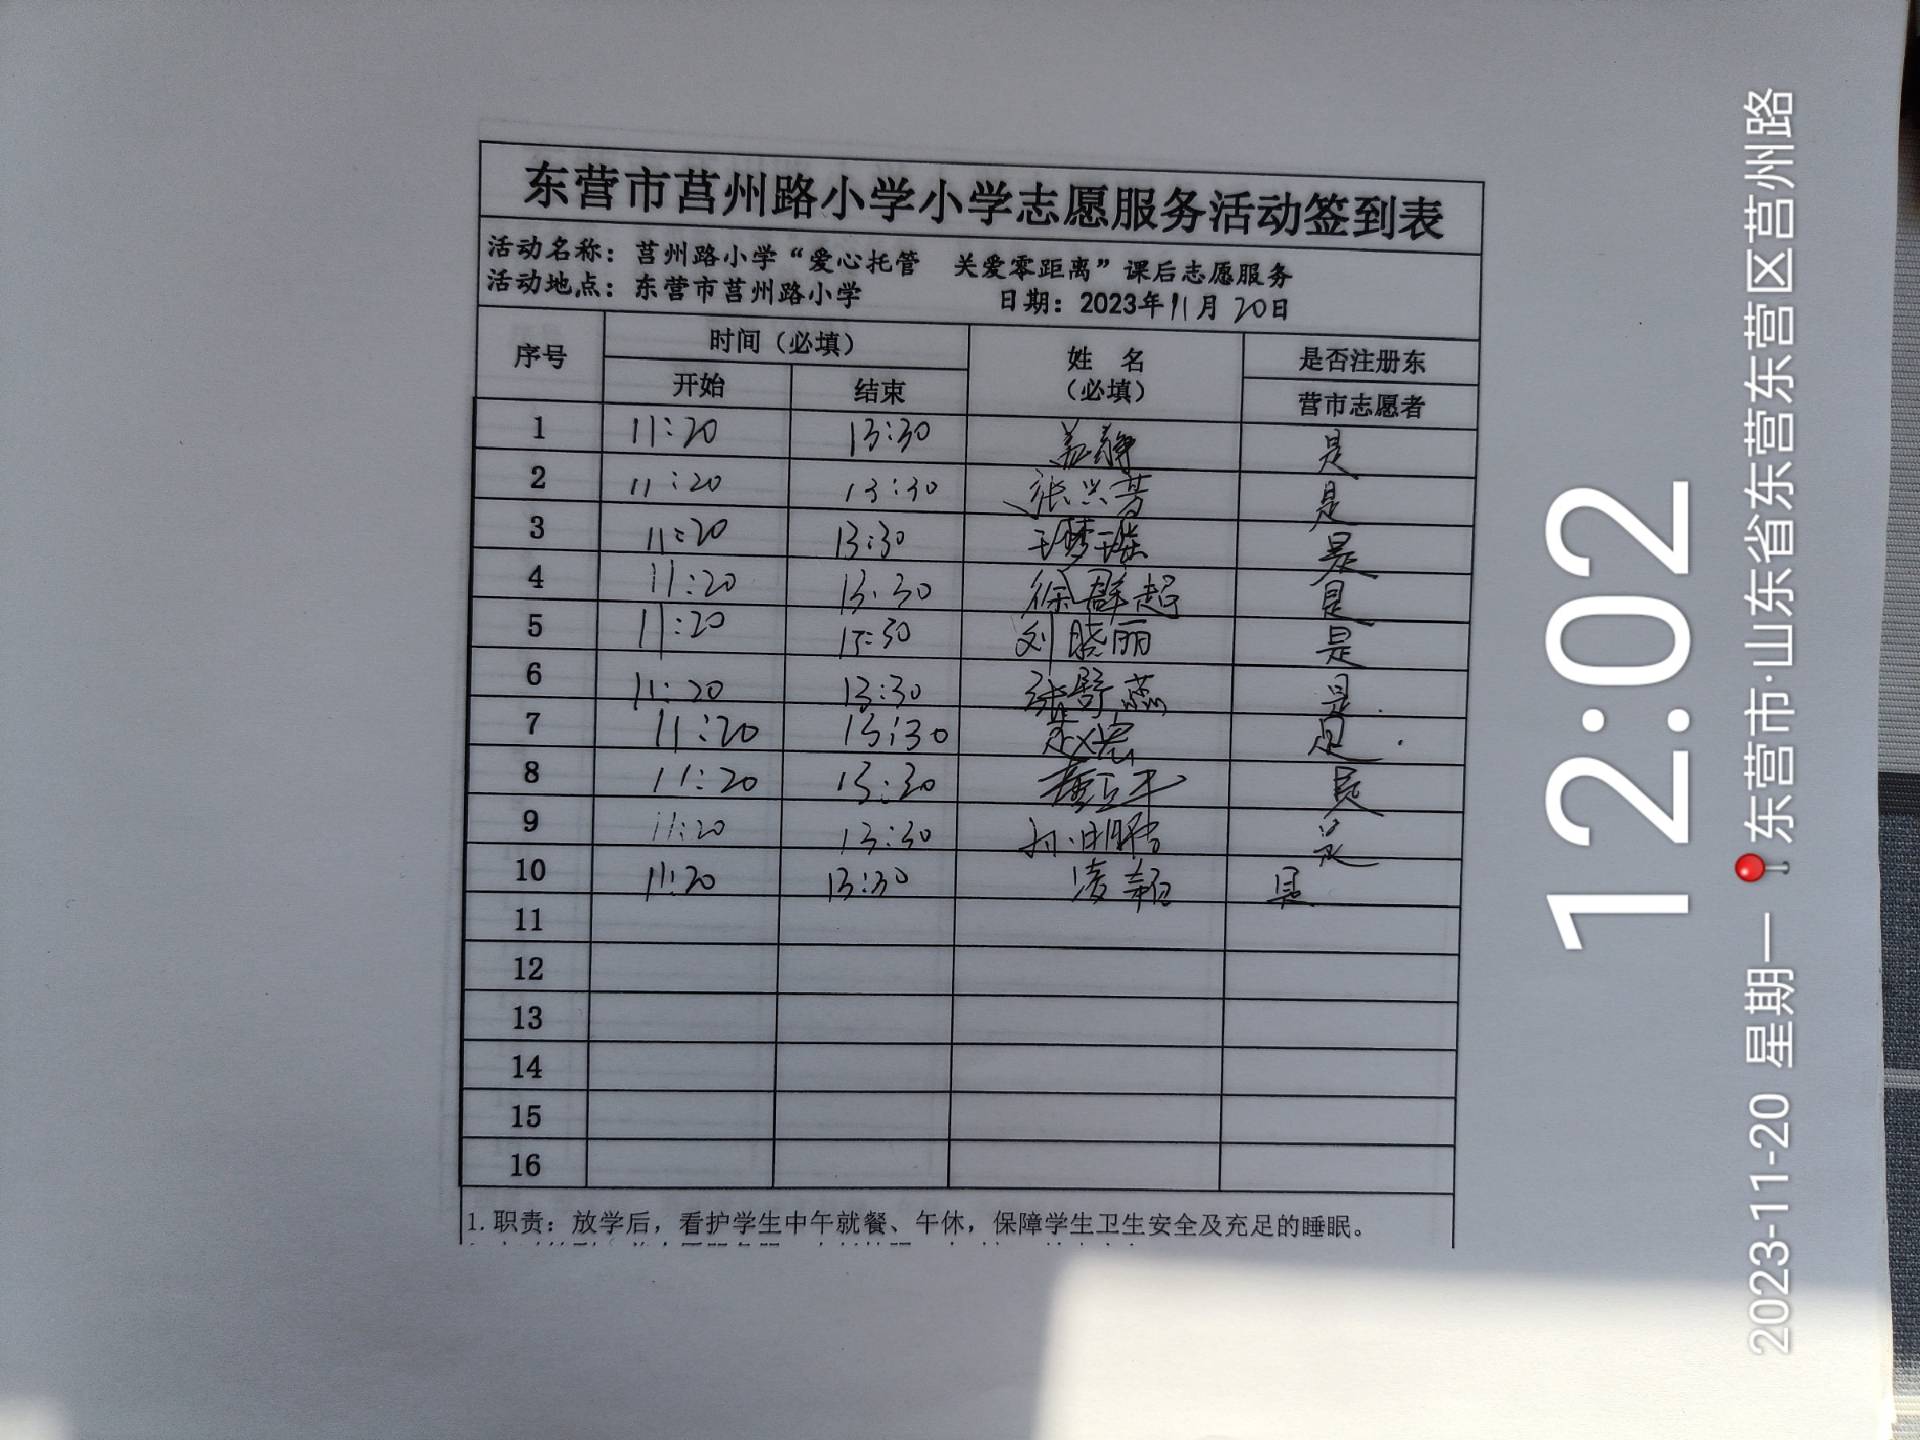 东营市莒州路小学小学志愿服务活动签到表
活动名称：莒州路小学“爱心托管 关爱零距离”课后志愿服务
活动地点：东营市莒州路小学 日期：2023年11月20日
序号 时间（必填） 姓 名（必填） 是否注册东营市志愿者
开始 结束
1 11:20 13:30 是
2 11:20 13:30 是
3 11:20 13:30 是
4 11:20 13:30 徐群超 是
5 11:20 13:30 刘晓丽 是
6 11:20 13:30 张舒蕊 是
7 11:20 13:30 赵宏 是
8 11:20 13:30 是
9 11:20 13:30 是
10 11:20 13:30 是
11
12
13
14
15
16
1.职责：放学后，看护学生中午就餐、午休，保障学生卫生安全及充足的睡眠。
12:02
2023-11-20 星期一 东营市·山东省东营东营区莒州路